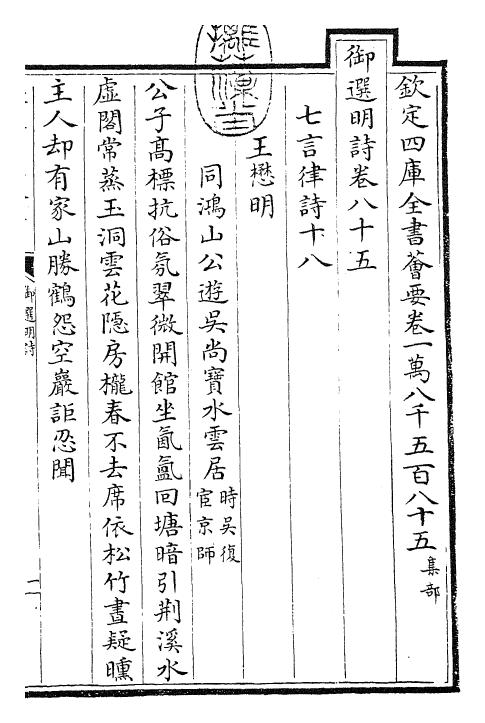 欽定四庫全書薈要卷一萬八千五百八十五集部
御選明詩卷八十五
七言律詩十八
王懋明
同鴻山公遊吳尚寶水雲居時吳復宦京師
公子髙標抗俗氛翠微開館坐氤氲回塘暗引荆溪水
虛閣常蒸玉洞雲花隱房櫳春不去席依松竹晝疑曛
主人却有家山勝鶴怨空巖詎忍聞
御選明詩